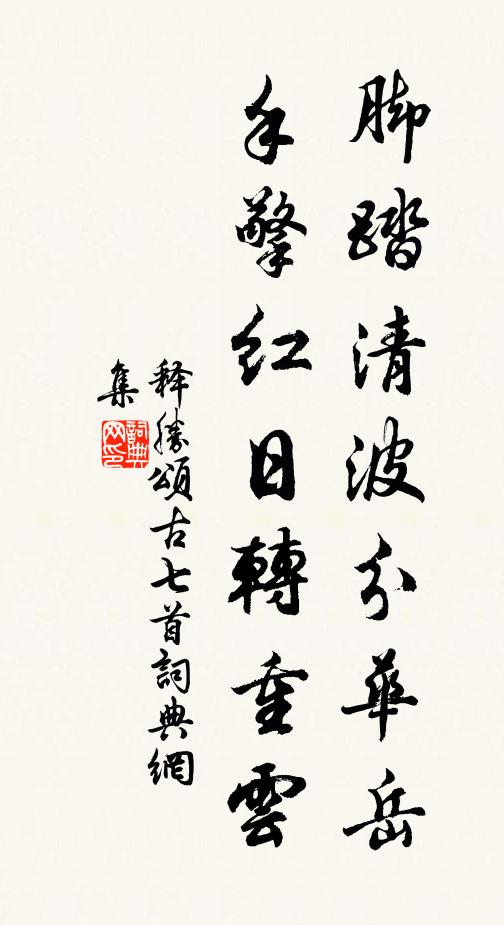 脚踏清波分華岳
手擎紅日轉重雲
釋勝頌古七首詞典網
集
詞典
网印